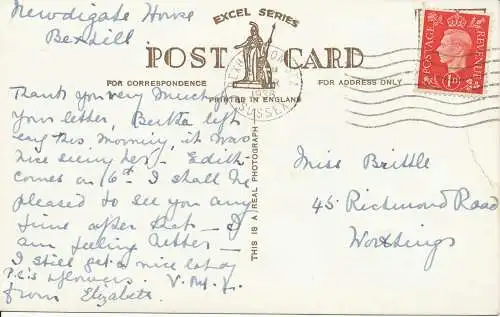 Newdigate House
Bexhill
EXCEL SERIES
POST CARD
FOR CORRESPONDENCE
FOR ADDRESS ONLY
PRINTED IN ENGLAND
THIS IS A REAL PHOTOGRAPH
POSTAGE
REVENUE
1D
1938
SUSSEX
Thank you very much for
your letter, Bertha left
early this morning, it was
nice seeing her. Edith
comes on 6th. I shall be
pleased to see you any
time after that - I
am feeling better -
I still get a nice lot of
P.C.'s & flowers.
from Elizabeth.
Miss Brittle
45 Richmond Road
Worthings